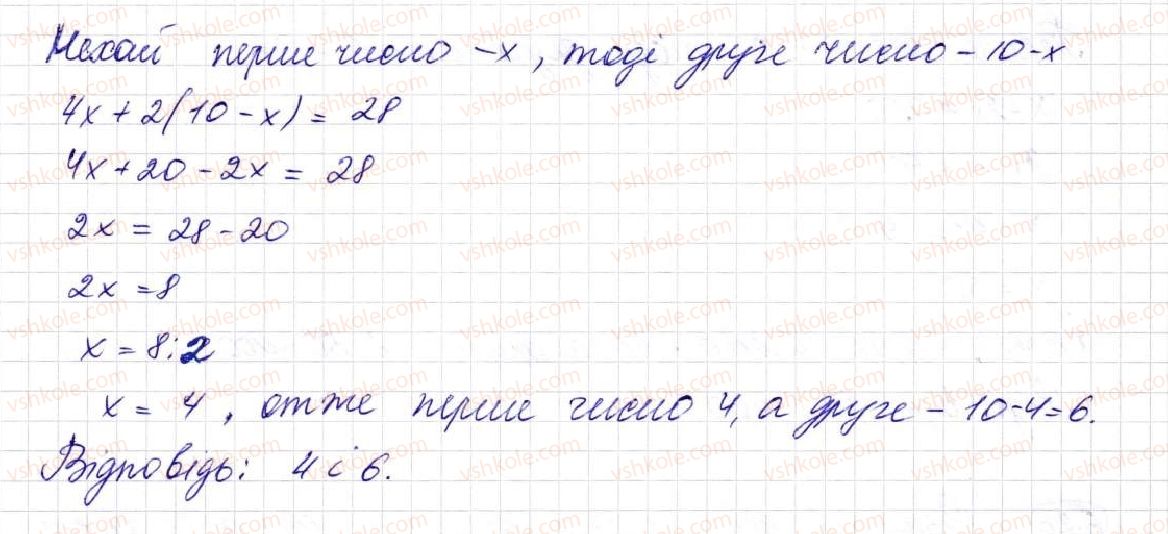 Нехай перше число - x, тоді друге число - 10 - x
4x + 2(10 - x) = 28
4x + 20 - 2x = 28
2x = 28 - 20
2x = 8
x = 8:2
x = 4, отже перше число 4, а друге - 10 - 4 = 6.
Відповідь: 4 і 6.